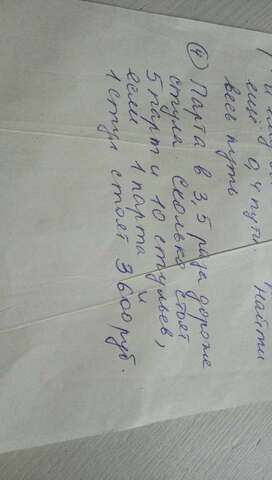 еще 0,4 пути.
Найти
весь путь
④ Парта в 3,5 раза дороже
стула. Сколько стоят
5 парт и 10 стульев,
если 1 парта и
1 стул стоят 3600 руб.